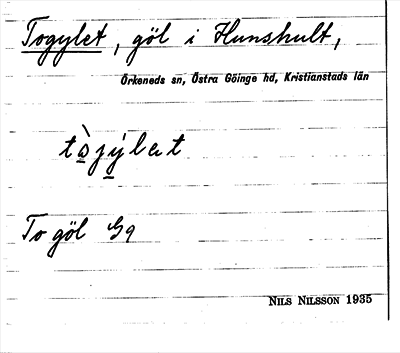 Togylet, göl i Hunshult,
Örkeneds sn, Östra Göinge hd, Kristianstads län
To göl Gq
NILS NILSSON 1935